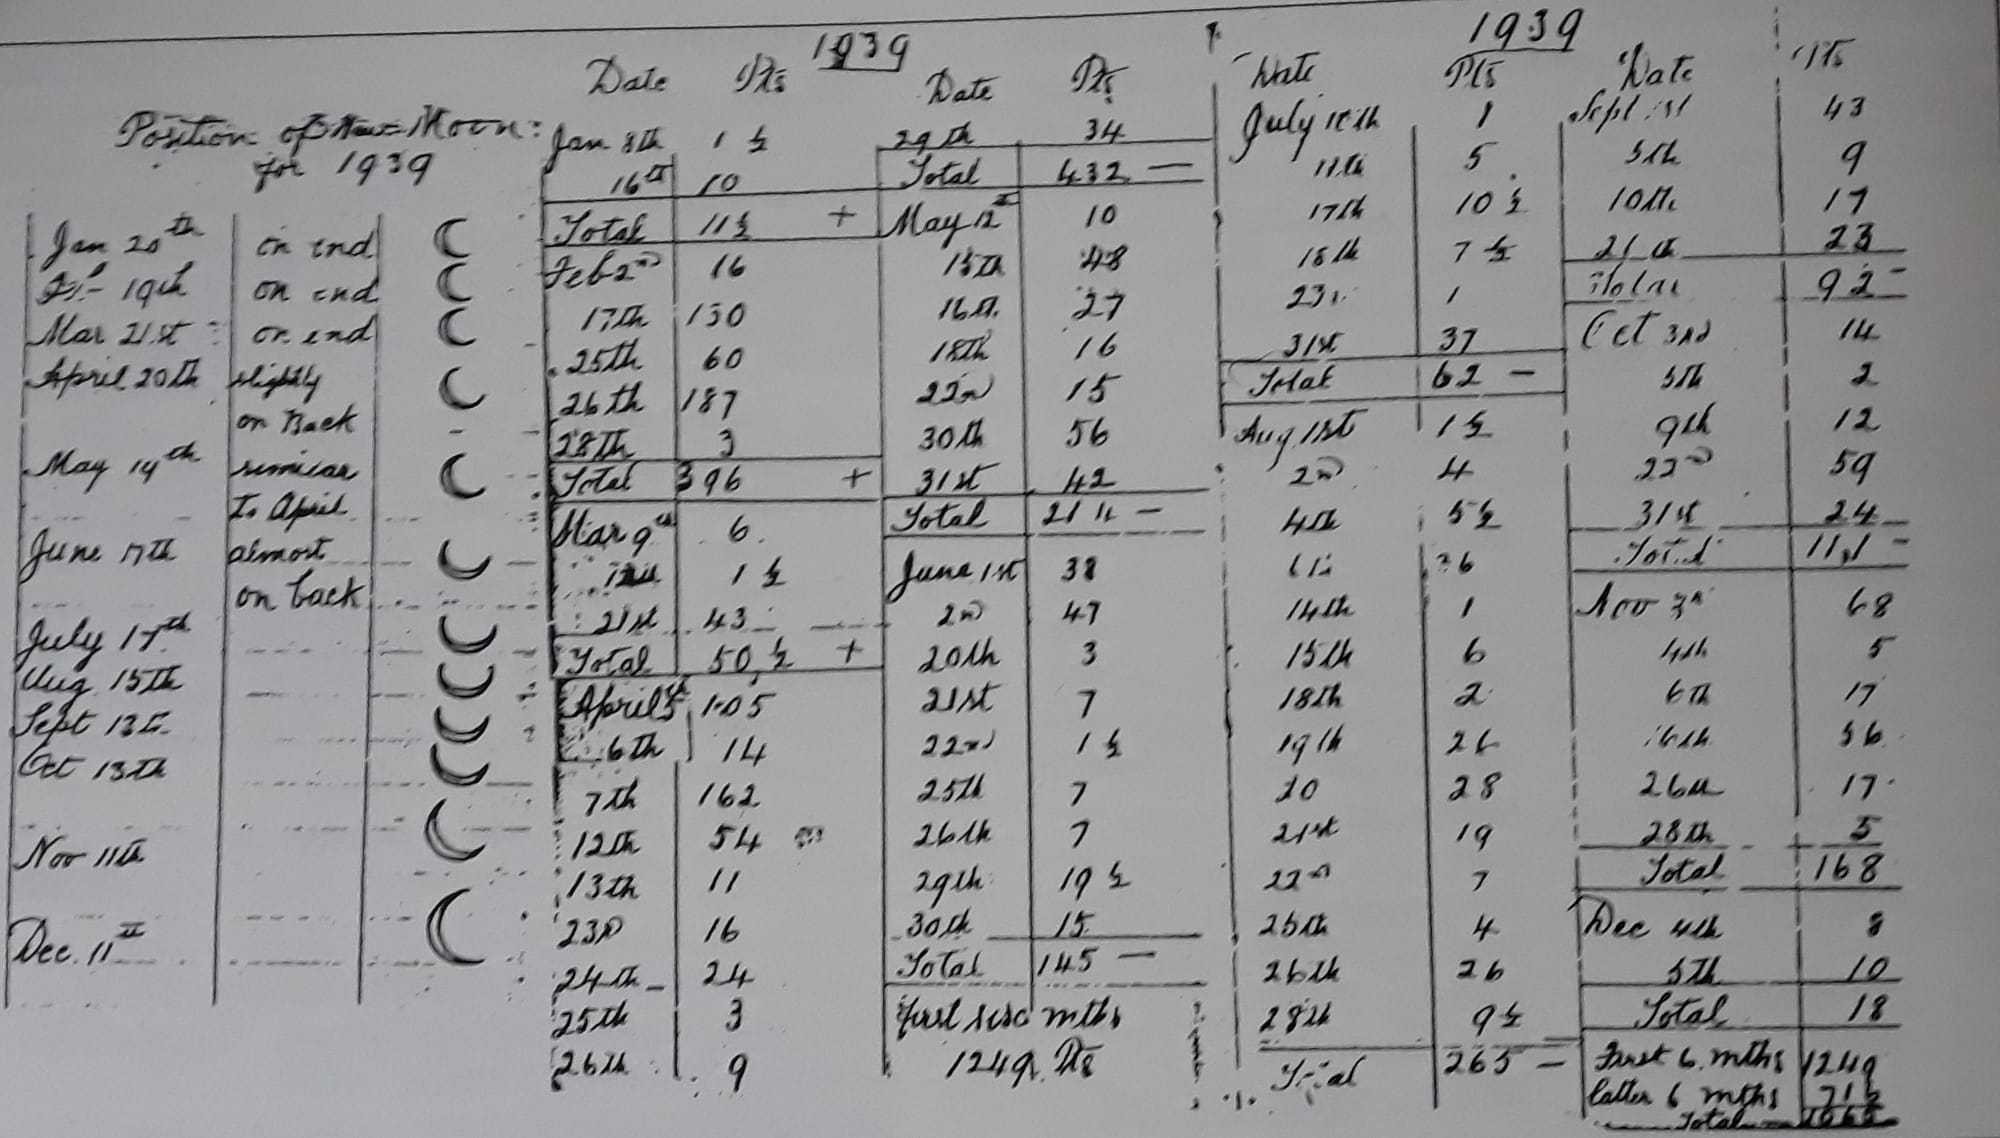 Position of New Moon:
for 1939
Jan 20th on end
Feb 19th on end
Mar 21st on end
April 20th slightly
on Back
May 19th similar
to April
June 17th almost
on back
July 17th
Aug 15th
Sept 13th
Oct 13th
Nov 11th
Dec. 11th
1939
Date Pts
Jan 8th 1 ½
16th 10
Total 11½ +
Feb 2nd 16
17th 130
25th 60
26th 187
28th 3
Total 396 +
Mar 9th 6
12th 1 ½
21st 43
Total 50 ½ +
April 5th 105
6th 14
7th 162
12th 54
13th 11
23rd 16
24th 24
25th 3
26th 9
Date Pts
29th 34
Total 432 —
May 12th 10
15th 48
16th 27
18th 16
22nd 15
30th 56
31st 42
Total 214 —
June 1st 38
2nd 47
20th 3
21st 7
22nd 1 ½
25th 7
26th 7
29th 19 ½
30th 15
Total 145 —
first six mths
1249 Pts
1939
Date Pts
July 10th 1
11th 5
17th 10 ½
18th 7 ½
23rd 1
31st 37
Total 62 —
Aug 1st 1 ½
2nd 4
4th 5 ½
11th 26
14th 1
15th 6
18th 2
19th 26
20 28
21st 19
22nd 7
25th 4
26th 26
28th 9 ½
Total 265 —
Date Pts
Sept 1st 43
5th 9
10th 17
21st 23
Total 92 —
Oct 3rd 14
5th 2
9th 12
22nd 59
31st 24
Total 111 —
Nov 3rd 68
4th 5
6th 17
16th 56
26th 17
28th 5
Total 168
Dec 4th 8
5th 10
Total 18
First 6 mths 1249
latter 6 mths
Total